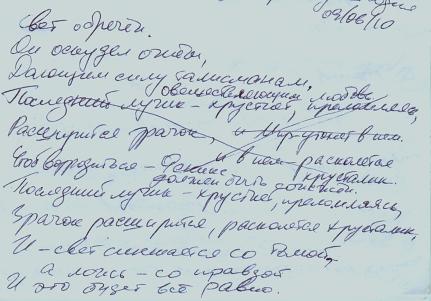 09/06/10
Свет обречён.
Он оскудел огнём,
Дающим силу талисманам,
овеществляющим любовь.
Последний лучик – хрустнет, преломляясь,
Расширится зрачок, и Мир утонет в нём.
и в нём – расколется хрусталик.
Чтоб возродиться – Феникс должен быть
Последний лучик – хрустнет, преломляясь,
Зрачок расширится, расколется хрусталик,
И – свет смешается со тьмой,
а ложь – со правдой
И это будет всё равно.